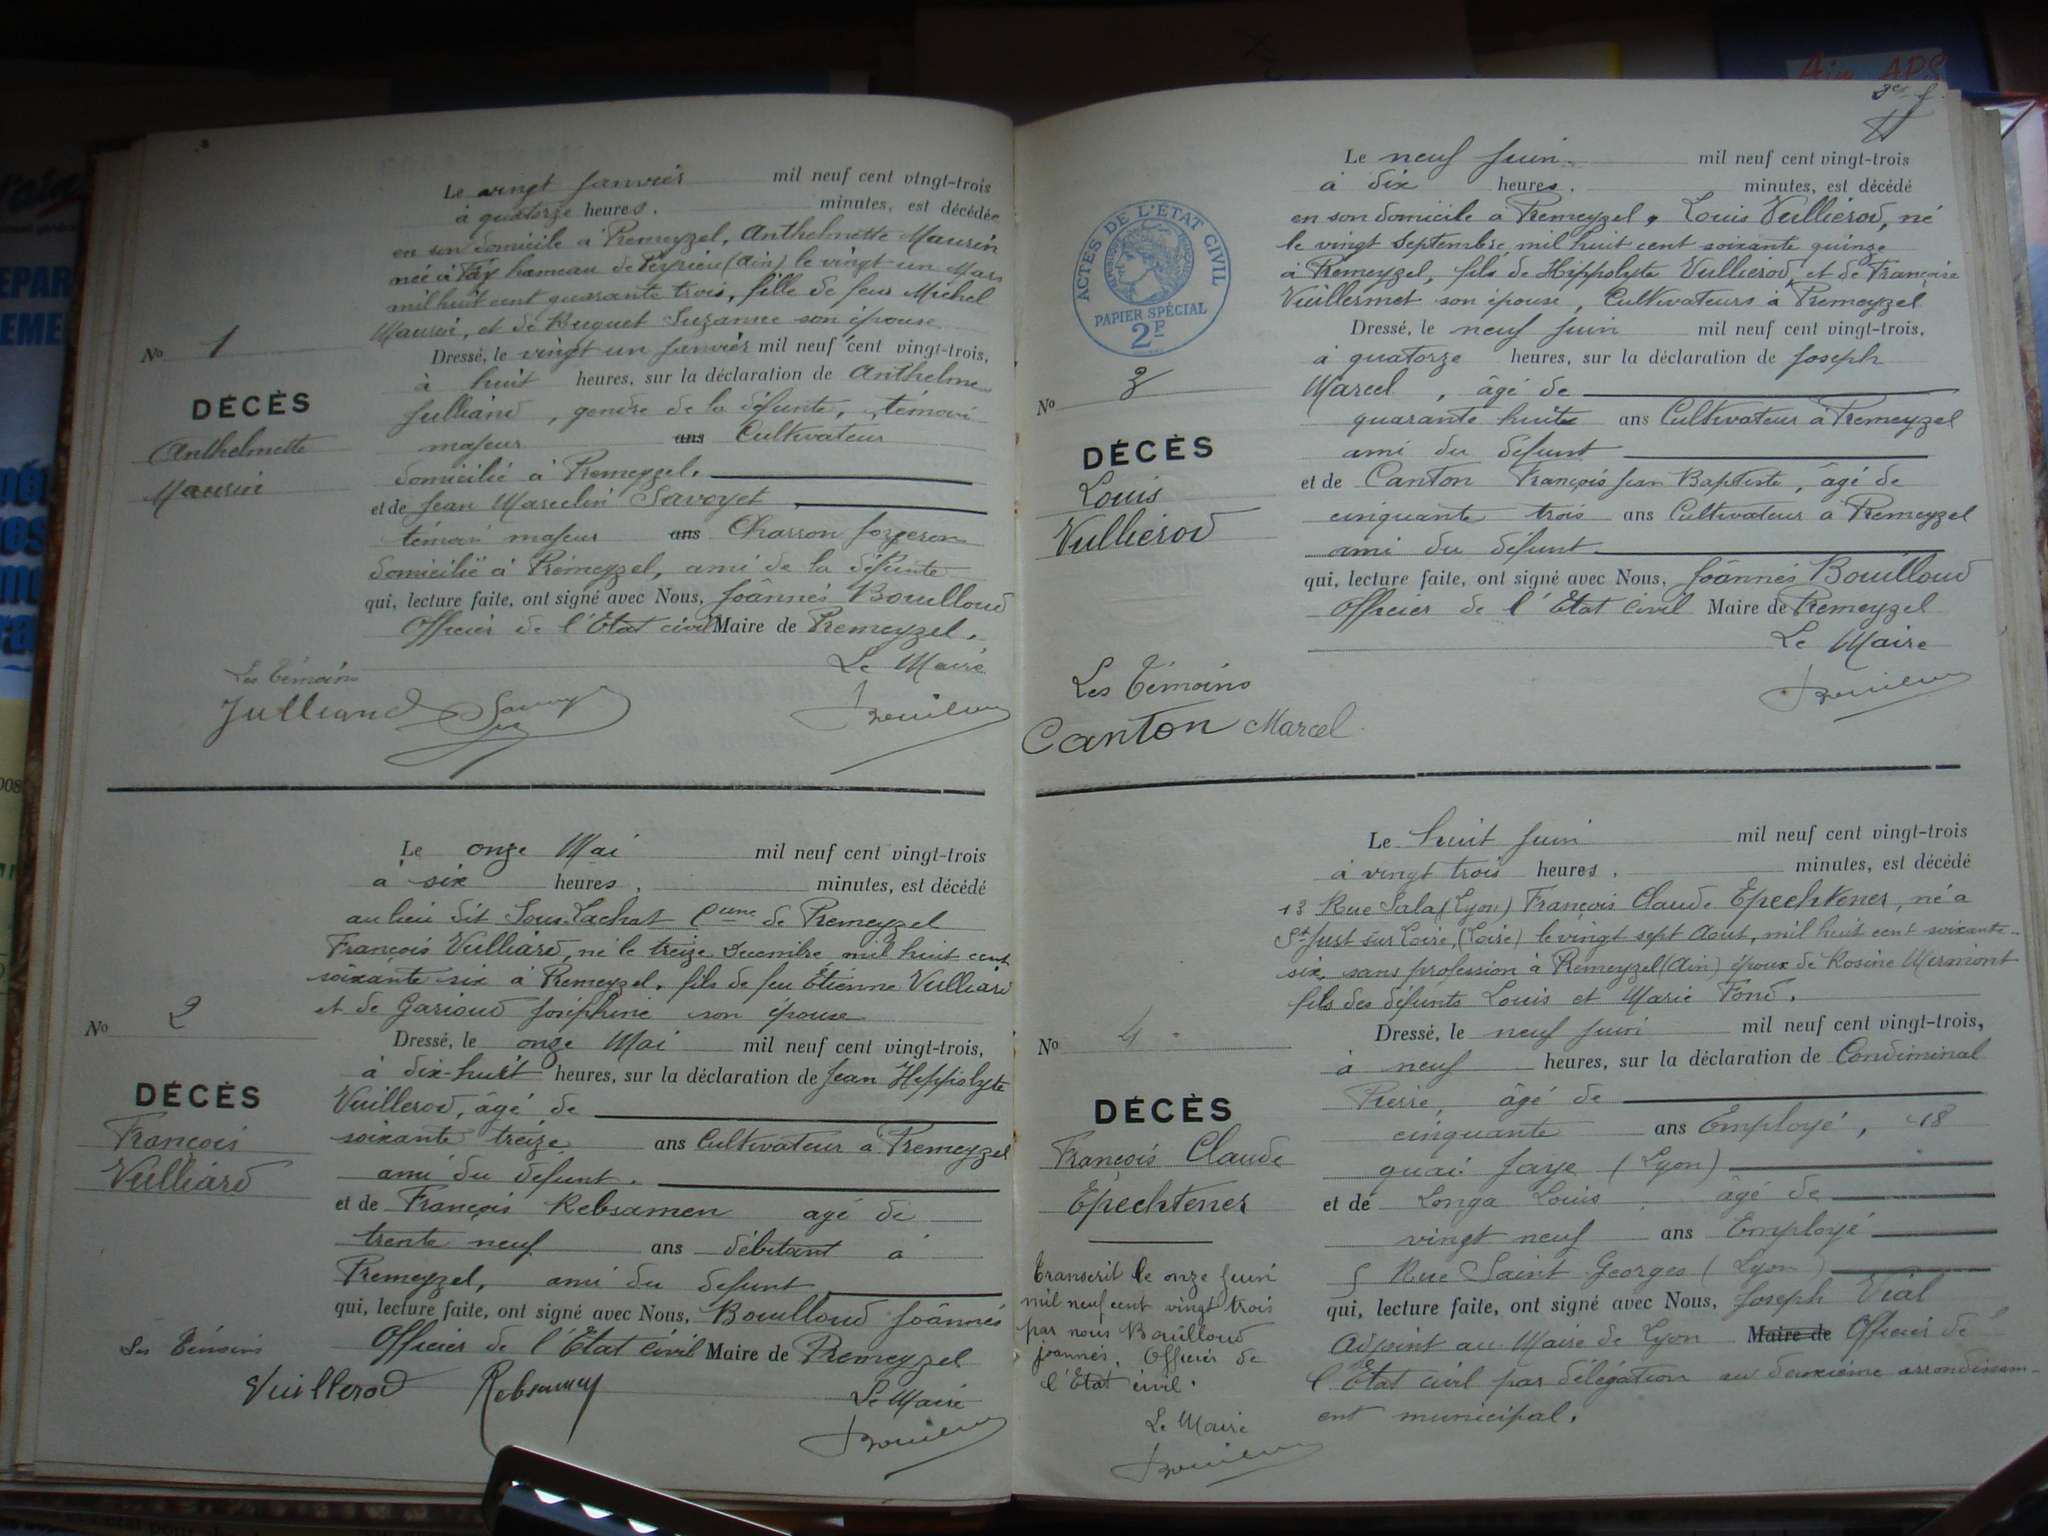 Le vingt Janvier mil neuf cent vingt-trois
à quatorze heures. minutes, est décédée
en son domicile à Premeyzel, Anthelmette Maurin
née à Fay hameau de Peyrieu (Ain) le vingt un Mars
mil huit cent quarante trois, fille de feu Michel
Maurin, et de Buguet Suzanne son épouse
Dressé, le vingt un Janvier mil neuf cent vingt-trois,
à huit heures, sur la déclaration de Anthelme
Julliand, gendre de la défunte, témoin
majeur ans Cultivateur
domicilié à Premeyzel.
et de Jean Marcelin Savoyet
témoin majeur ans Charron forgeron
domicilié à Premeyzel, ami de la défunte
qui, lecture faite, ont signé avec Nous, Joânnès Bouilloud
Officier de l'Etat civil Maire de Premeyzel.
Les Témoins Le Maire
Julliand
No 1
DÉCÈS
Anthelmette
Maurin
Le onze Mai mil neuf cent vingt-trois
à six heures. minutes, est décédé
au lieu dit Sous Lachat Cune de Premeyzel
François Vulliard, né le treize Decembre mil huit cent
soixante six à Premeyzel, fils de feu Etienne Vulliard
et de Garioud Joséphine son épouse
Dressé, le onze Mai mil neuf cent vingt-trois,
à dix-huit heures, sur la déclaration de Jean Hippolyte
Vuillerod, âgé de
soixante treize ans Cultivateur à Premeyzel
ami du defunt.
et de François Rebsamen agé de
trente neuf ans débitant à
Premeyzel, ami du defunt
qui, lecture faite, ont signé avec Nous, Bouilloud Joânnès
Officier de l'Etat Civil Maire de Premeyzel
Les Témoins Le Maire
Vuillerod Rebsamen
No 2
DÉCÈS
François
Vulliard
Le neuf Juin. mil neuf cent vingt-trois
à dix heures. minutes, est décédé
en son domicile à Premeyzel, Louis Vulliérod, né
le vingt Septembre mil huit cent soixante quinze
à Premeyzel, fils de Hippolyte Vulliérod, et de Françoise
Vuillermet son épouse, Cultivateurs à Premeyzel
Dressé, le neuf Juin mil neuf cent vingt-trois,
à quatorze heures, sur la déclaration de Joseph
Marcel, âgé de
quarante huit ans Cultivateur à Premeyzel
ami du défunt
et de Canton François Jean Baptiste, âgé de
cinquante trois ans Cultivateur à Premeyzel
ami du défunt
qui, lecture faite, ont signé avec Nous, Joânnès Bouilloud
Officier de l'Etat Civil Maire de Premeyzel
Le Maire
Les Témoins
Canton Marcel
ACTES DE L'ÉTAT CIVIL
PAPIER SPÉCIAL
2F
No 3
DÉCÈS
Louis
Vulliérod
Le huit Juin mil neuf cent vingt-trois
à vingt trois heures. minutes, est décédé
13 Rue Sala (Lyon) François Claude Epechtener, né à
St Just sur Loire, (Loire) le vingt sept Aout, mil huit cent soixante
six, sans profession à Premeyzel (Ain) époux de Rosine Mermont
fils des défunts Louis et Marie Fond.
Dressé, le neuf Juin mil neuf cent vingt-trois,
à neuf heures, sur la déclaration de Condiminal
Pierre, âgé de
cinquante ans Employé, 18
quai Jayr (Lyon)
et de Longa Louis âgé de
vingt neuf ans Employé
5 Rue Saint Georges (Lyon)
qui, lecture faite, ont signé avec Nous, Joseph Vial
Adjoint au Maire de Lyon Maire de Officier de
l'Etat civil par délégation au deuxième arrondissem-
ent municipal.
No 4
DÉCÈS
François Claude
Epechtener
Transcrit le onze Juin
mil neuf cent vingt trois
par nous Bouilloud
Joannès, Officier de
l'Etat civil.
Le Maire